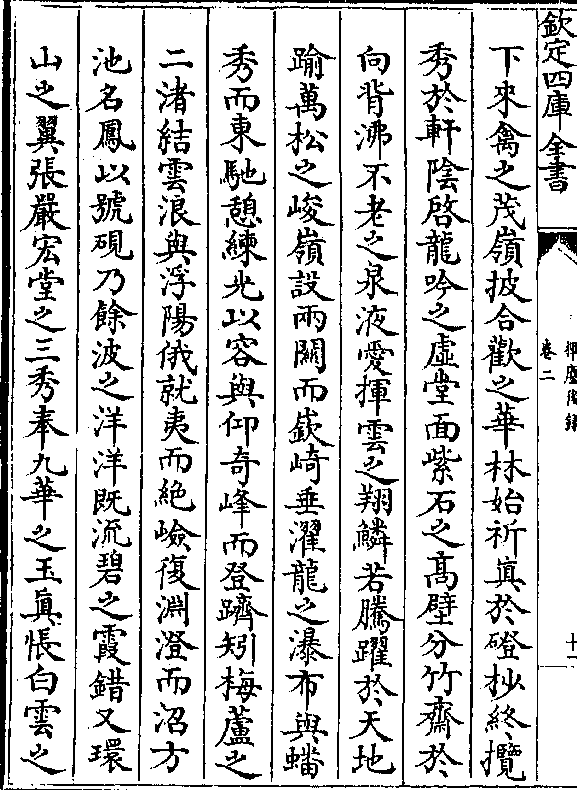 欽定四庫全書
卷二
下來禽之茂嶺披合歡之華林始祈真於磴杪終攬
秀於軒陰啓龍吟之虛堂面紫石之高壁分竹齋於
向背沸不老之泉液愛揮雲之翔鱗若騰躍於天地
踰萬松之峻嶺設兩關而嶔崎垂濯龍之瀑布與蟠
秀而東馳憩練光以容與仰奇峰而登躋矧梅蘆之
二渚結雲浪與浮陽俄就夷而絶嶮復淵澄而沼方
池名鳳以號硯乃餘波之洋洋既流碧之霞錯又環
山之翼張嚴宏堂之三秀奉九華之玉真悵白雲之